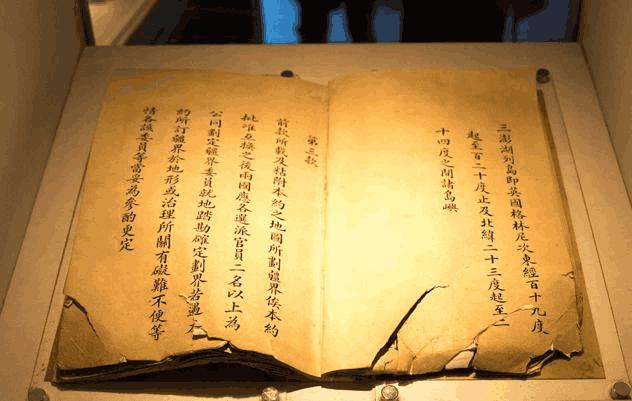 三澎湖列島即英國格林尼次東經百十九度
起至百二十度止及北緯二十三度起至二
十四度之間諸島嶼
第三款
前款所載及粘附本約之地圖所劃疆界俟本約
批准互換之後兩國應各選派官員二名以上為
公同劃定疆界委員就地踏勘確定劃界若遇本
約所訂疆界於地形或治理所關有礙難不便等
情各該委員等當妥為參酌更定